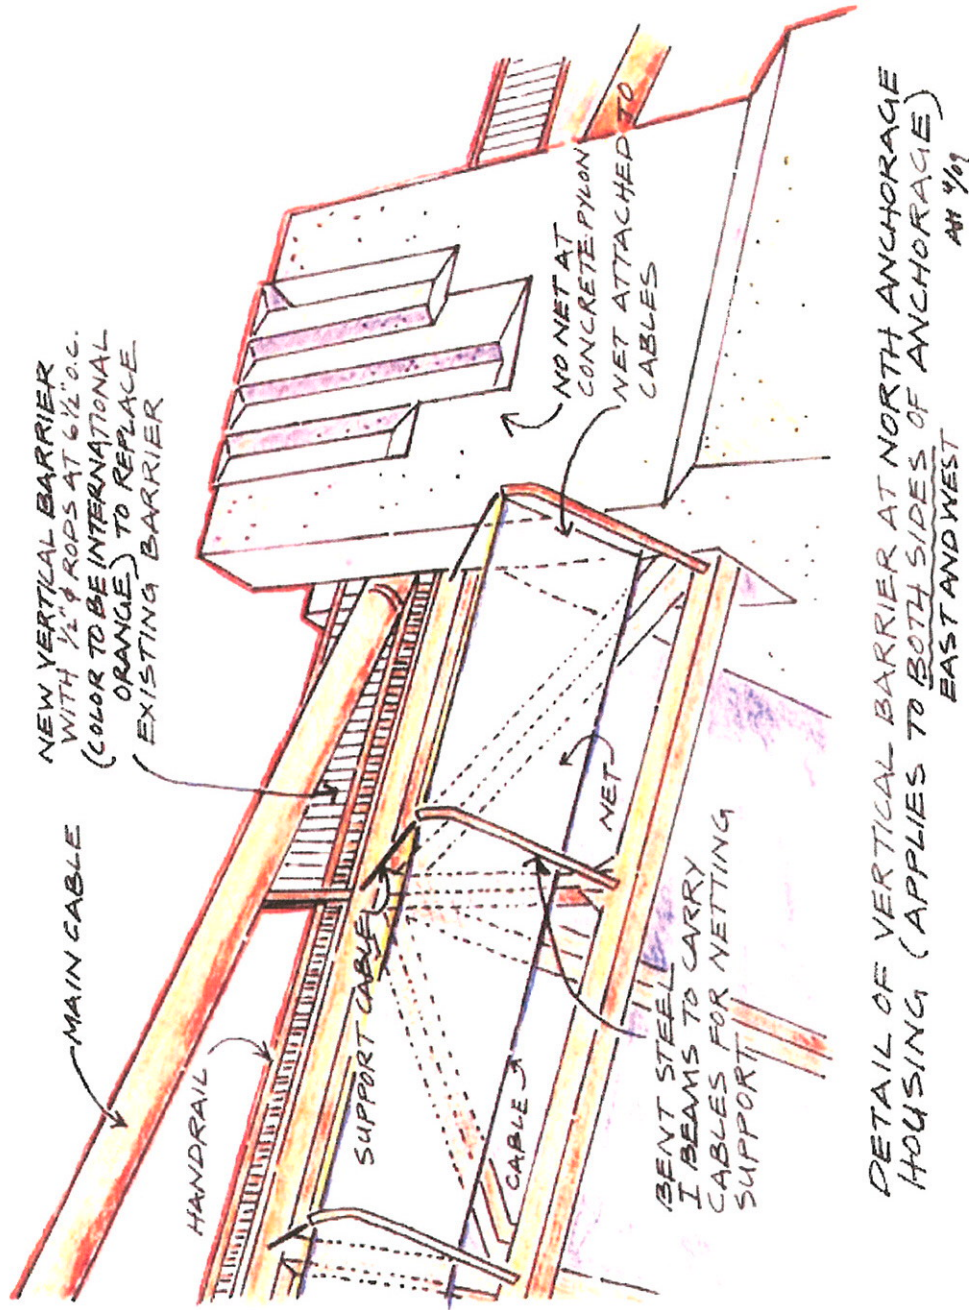 NEW VERTICAL BARRIER
WITH 1/2"φ RODS AT 6 1/2" O.C.
(COLOR TO BE INTERNATIONAL
ORANGE) TO REPLACE
EXISTING BARRIER
MAIN CABLE
HANDRAIL
SUPPORT CABLE
NO NET AT
CONCRETE PYLON
NET ATTACHED TO
CABLES
NET
CABLE
BENT STEEL
I BEAMS TO CARRY
CABLES FOR NETTING
SUPPORT
DETAIL OF VERTICAL BARRIER AT NORTH ANCHORAGE
HOUSING (APPLIES TO BOTH SIDES OF ANCHORAGE)
EAST AND WEST